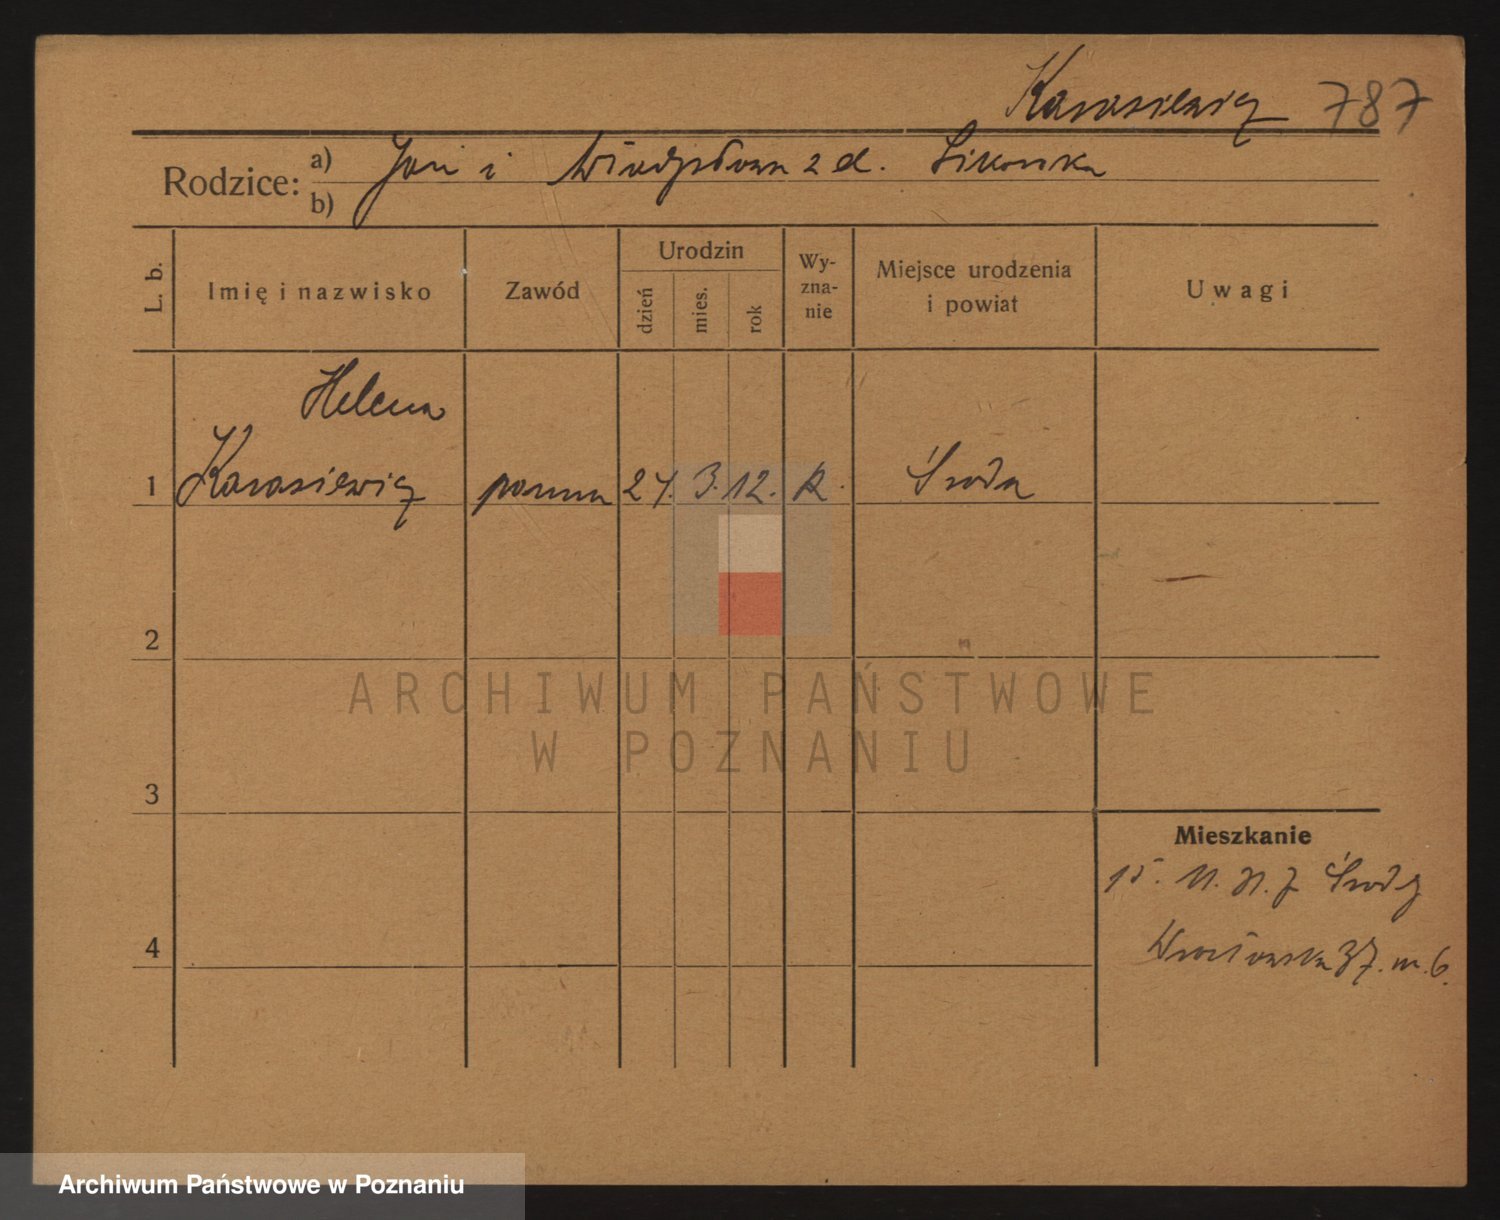 Karasiewicz 787
Rodzice: a) Jan i Władysława z d. Sikorska
b)
L. b. Imię i nazwisko Zawód Urodzin dzień mies. rok Wy-zna-nie Miejsce urodzenia i powiat Uwagi
Helena
1 Karasiewicz panna 27. 3. 12. R. Środa
2
ARCHIWUM PAŃSTWOWE
W POZNANIU
3
Mieszkanie
15. 11. Środy
4 37. m. 6.
Archiwum Państwowe w Poznaniu